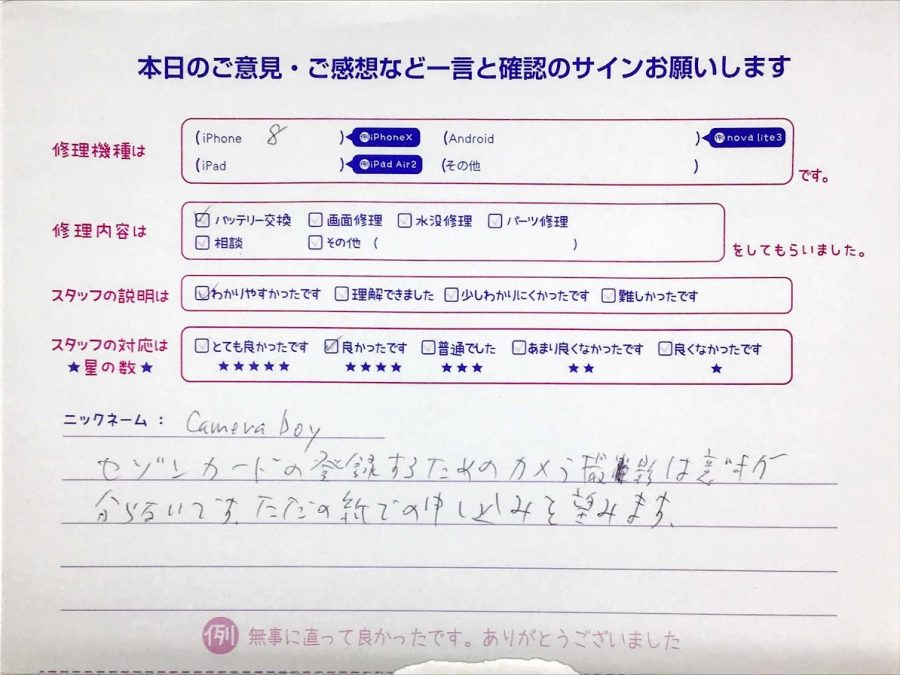 本日のご意見・ご感想など一言と確認のサインお願いします
修理機種は
(iPhone 8 ) 例iPhoneX (Android ) 例nova lite3
(iPad ) 例iPad Air2 (その他 ) です。
修理内容は
バッテリー交換 画面修理 水没修理 パーツ修理
相談 その他 ( ) をしてもらいました。
スタッフの説明は わかりやすかったです 理解できました 少しわかりにくかったです 難しかったです
スタッフの対応は とても良かったです 良かったです 普通でした あまり良くなかったです 良くなかったです
★星の数★ ★★★★★ ★★★★ ★★★ ★★ ★
ニックネーム： Camera boy
セゾンカードの登録するためのカメラ撮影は意味が
分らないです。ただの紙での申し込みを望みます。
例 無事に直って良かったです。ありがとうございました